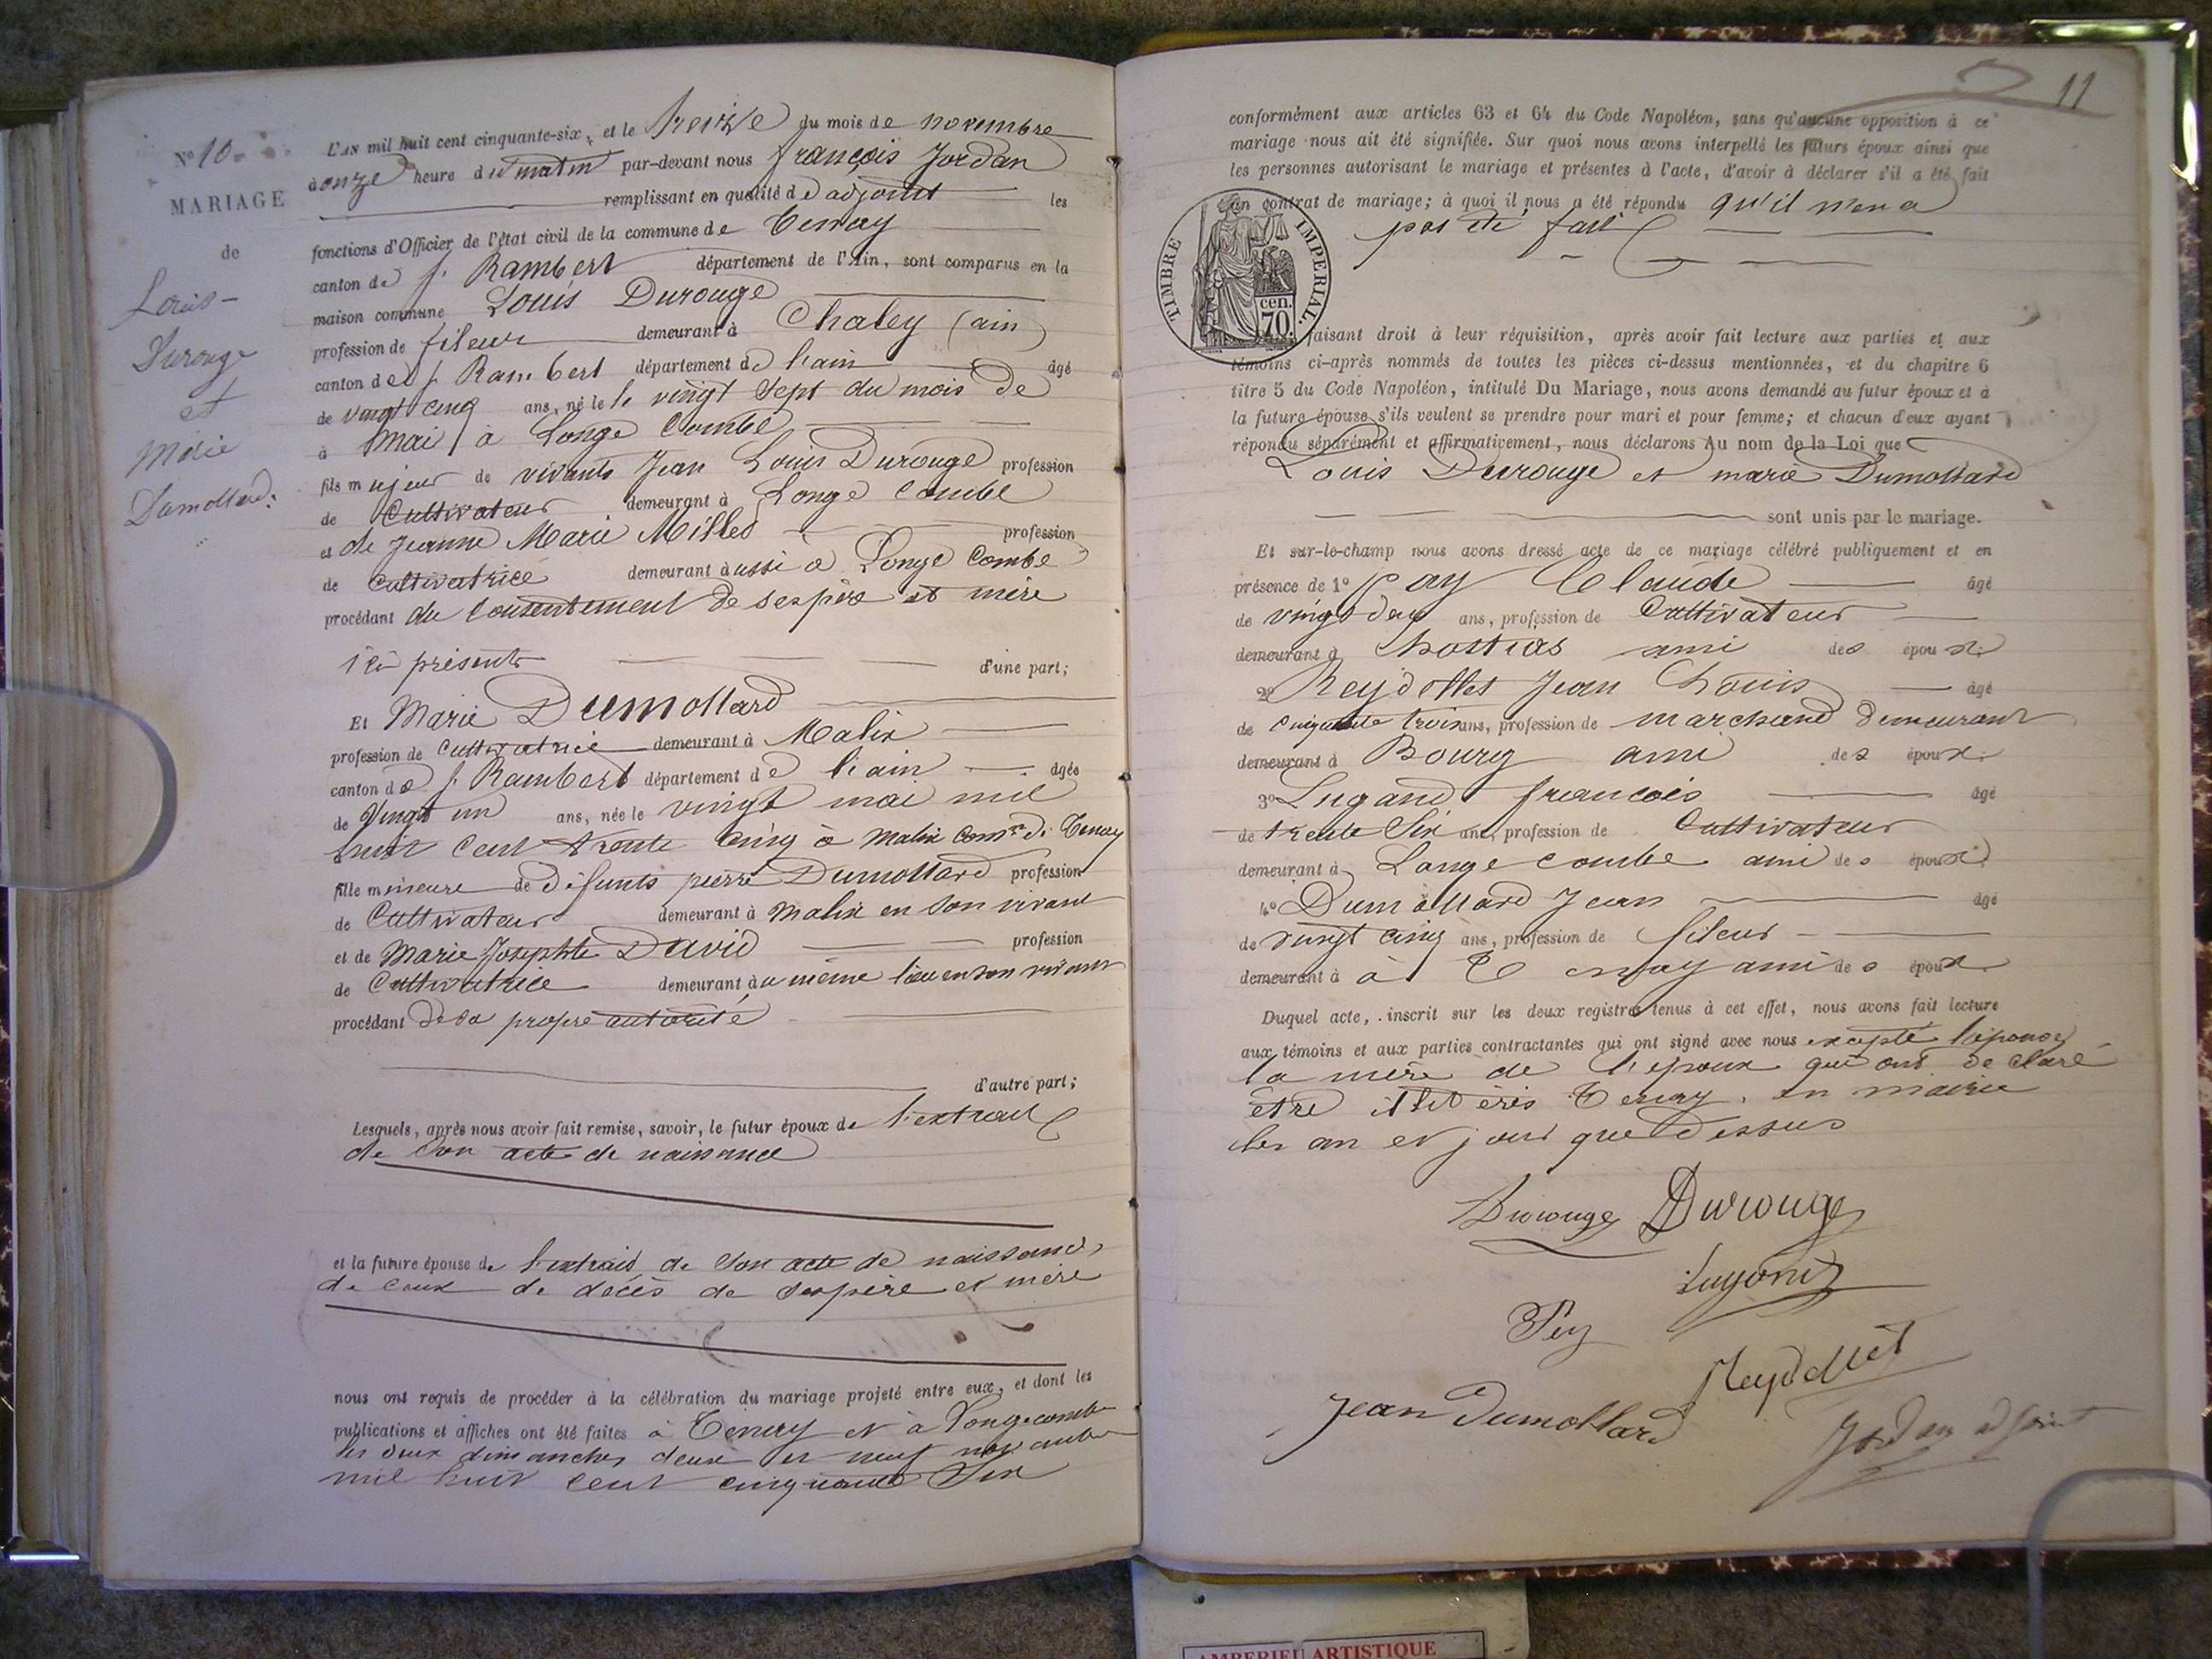 N° 10
MARIAGE
de
Louis
Durouge
et
Marie
Dumollard.
L'AN mil huit cent cinquante-six, et le treize du mois de novembre
à onze heure du matin par-devant nous françois Jordan
remplissant en qualité de adjoint les
fonctions d'Officier de l'état civil de la commune de Tenay
canton de S. Rambert département de l'Ain, sont comparus en la
maison commune Louis Durouge
profession de fileur demeurant à Chaley (ain)
canton de S. Rambert département de l'ain âgé
de vingt cinq ans, né le le vingt sept du mois de
à mai à Longe Combe
fils majeur de vivants Jean Louis Durouge profession
de Cultivateur demeurant à Longe Combe
et de Jeanne Marie Millet profession
de cultivatrice demeurant aussi à Longe Combe
procédant du consentement de ses père et mère
ici présents d'une part;
Et Marie Dumollard
profession de Cultivatrice demeurant à Malix
canton de S. Rambert département de l'ain âgée
de Vingt un ans, née le vingt mai mil
huit cent trente cinq à Malix Com.ne de Tenay
fille mineure de défunts pierre Dumollard profession
de Cultivateur demeurant à Malix en son vivant
et de Marie Josephte David profession
de Cultivatrice demeurant au même lieu en son vivant
procédant de sa propre autorité
d'autre part;
Lesquels, après nous avoir fait remise, savoir, le futur époux de l'extrait
de son acte de naissance
et la future épouse de l'extrait de son acte de naissance,
de ceux de décès de ses père et mère
nous ont requis de procéder à la célébration du mariage projeté entre eux, et dont les
publications et affiches ont été faites à Tenay et à Longecombe
les deux dimanches deux et neuf novembre
mil huit cent cinquante Six
11
conformément aux articles 63 et 64 du Code Napoléon, sans qu'aucune opposition à ce
mariage nous ait été signifiée. Sur quoi nous avons interpellé les futurs époux ainsi que
les personnes autorisant le mariage et présentes à l'acte, d'avoir à déclarer s'il a été fait
un contrat de mariage; à quoi il nous a été répondu qu'il n'en a
pas été fait
TIMBRE IMPERIAL.
70 cen.
faisant droit à leur réquisition, après avoir fait lecture aux parties et aux
témoins ci-après nommés de toutes les pièces ci-dessus mentionnées, et du chapitre 6
titre 5 du Code Napoléon, intitulé Du Mariage, nous avons demandé au futur époux et à
la future épouse s'ils veulent se prendre pour mari et pour femme; et chacun d'eux ayant
répondu séparément et affirmativement, nous déclarons Au nom de la Loi que
Louis Durouge et marie Dumollard
sont unis par le mariage.
Et sur-le-champ nous avons dressé acte de ce mariage célébré publiquement et en
présence de 1° Pay Claude âgé
de vingt deux ans, profession de Cultivateur
demeurant à hostias ami des époux.
2° Reydellet Jean Louis âgé
de cinquante trois ans, profession de marchand demeurant
demeurant à Bourg ami des époux.
3° Lugand françois âgé
de trente Six ans, profession de Cultivateur
demeurant à Longe combe ami des époux.
4° Dumollard Jean âgé
de vingt cinq ans, profession de fileur
demeurant à à Tenay ami des époux
Duquel acte, inscrit sur les deux registres tenus à cet effet, nous avons fait lecture
aux témoins et aux parties contractantes qui ont signé avec nous excepté l'épouse
la mère de l'époux qui ont déclaré
être illitérés Tenay, en mairie
les an et jour que dessus
Durouge Durouge
Lugand
Pey
Reydellet
Jean Dumollard
Jordan adjoint
AMBERIEU ARTISTIQUE